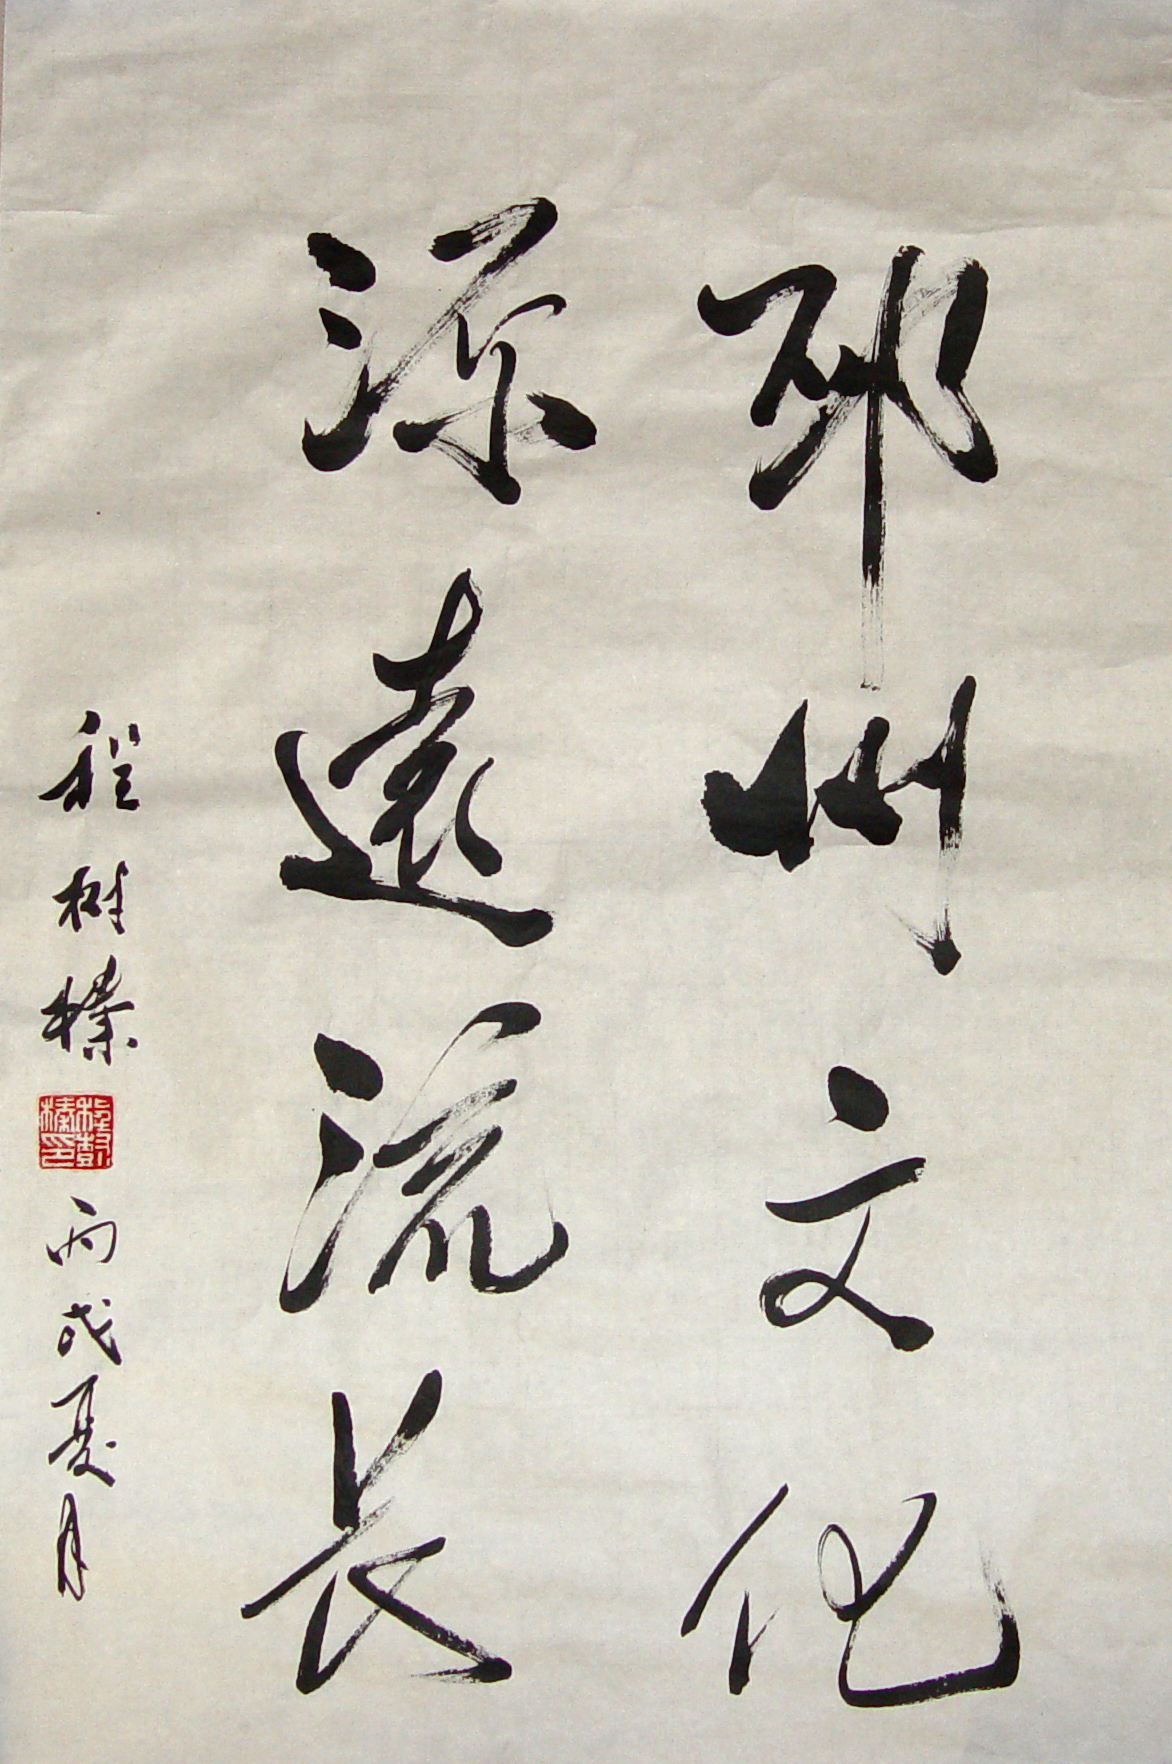 邳州文化
源遠流长
程树榛
程樹榛印
丙戌夏月